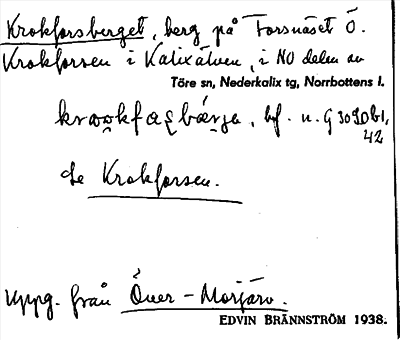 Krokforsberget, berg på Forsnäset Ö.
Krokforsen i Kalixälven, i NO delen av
Töre sn, Nederkalix tg, Norrbottens l.
bf. u. G 3090 b1,
42
Se Krokforsen.
Uppg. från Över-Morjärv.
EDVIN BRÄNNSTRÖM 1938.